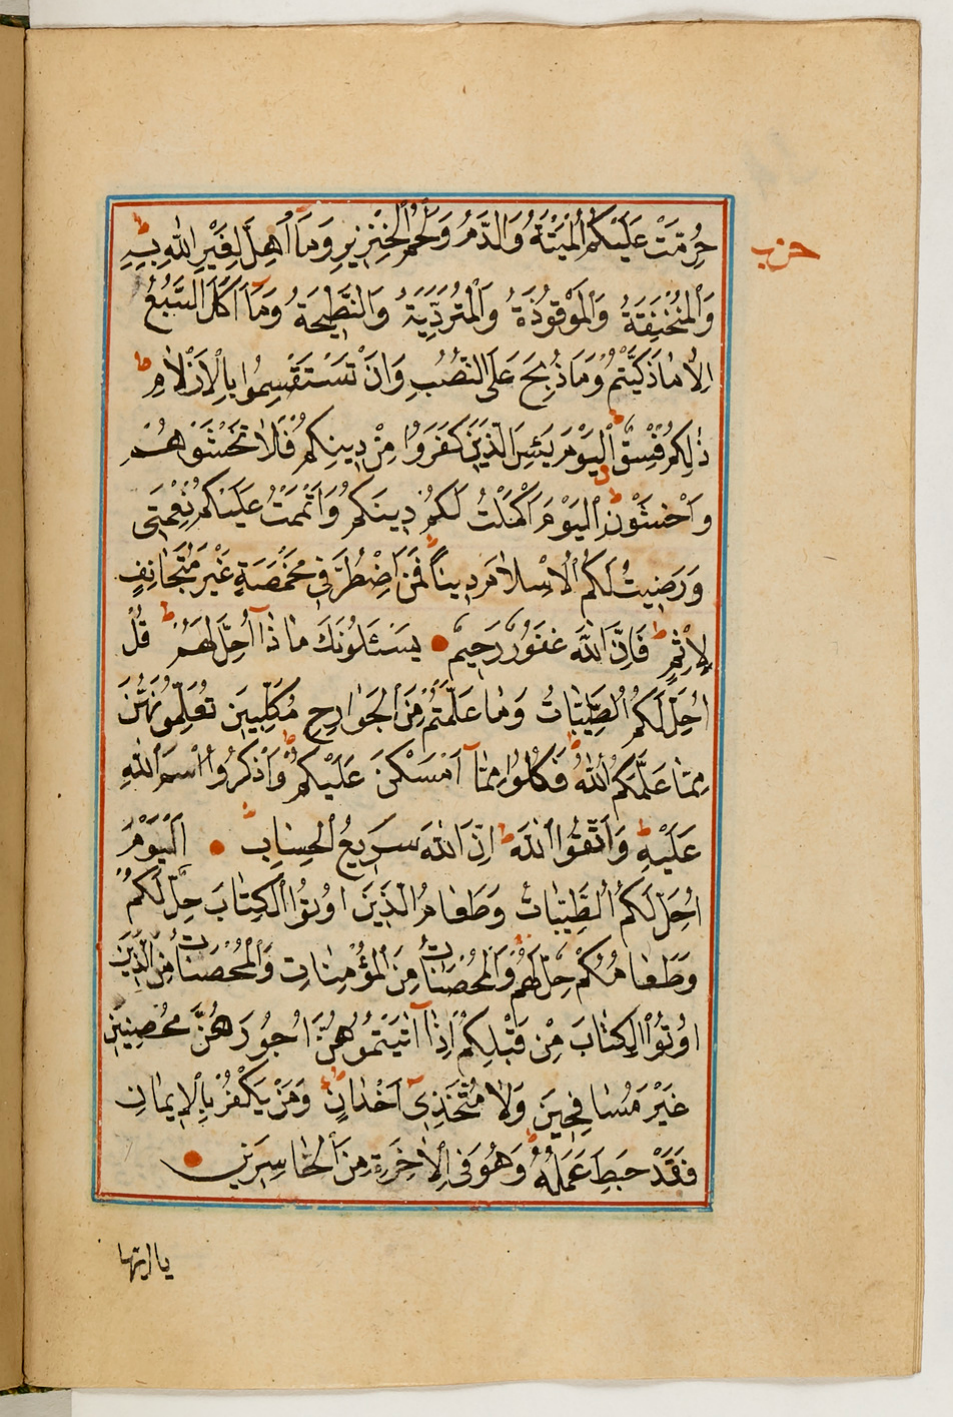 حزب
حُرِّمَتْ عَلَيْكُمُ الْمَيْتَةُ وَالدَّمُ وَلَحْمُ الْخِنْزِيرِ وَمَآ اُهِلَّ لِغَيْرِ اللّٰهِ بِهِ ط
وَالْمُنْخَنِقَةُ وَالْمَوْقُوذَةُ وَالْمُتَرَدِّيَةُ وَالنَّطِيحَةُ وَمَآ اَكَلَ السَّبُعُ
اِلَّا مَا ذَكَّيْتُمْ وَمَا ذُبِحَ عَلَى النُّصُبِ وَاَنْ تَسْتَقْسِمُوا بِالْاَزْلَامِ ط
ذٰلِكُمْ فِسْقٌ ط اَلْيَوْمَ يَئِسَ الَّذِينَ كَفَرُوا مِنْ دِينِكُمْ فَلَا تَخْشَوْهُمْ
وَاخْشَوْنِ ط اَلْيَوْمَ اَكْمَلْتُ لَكُمْ دِينَكُمْ وَاَتْمَمْتُ عَلَيْكُمْ نِعْمَتِى
وَرَضِيتُ لَكُمُ الْاِسْلَامَ دِينًا ط فَمَنِ اضْطُرَّ فِى مَخْمَصَةٍ غَيْرَ مُتَجَانِفٍ
لِاِثْمٍ ط فَاِنَّ اللّٰهَ غَفُورٌ رَحِيمٌ ● يَسْـَٔلُونَكَ مَا ذَآ اُحِلَّ لَهُمْ ط قُلْ
اُحِلَّ لَكُمُ الطَّيِّبَاتُ وَمَا عَلَّمْتُمْ مِنَ الْجَوَارِحِ مُكَلِّبِينَ تُعَلِّمُونَهُنَّ
مِمَّا عَلَّمَكُمُ اللّٰهُ ط فَكُلُوا مِمَّآ اَمْسَكْنَ عَلَيْكُمْ ط وَاذْكُرُوا اسْمَ اللّٰهِ
عَلَيْهِ ط وَاتَّقُوا اللّٰهَ ط اِنَّ اللّٰهَ سَرِيعُ الْحِسَابِ ط ● اَلْيَوْمَ
اُحِلَّ لَكُمُ الطَّيِّبَاتُ وَطَعَامُ الَّذِينَ اُوتُوا الْكِتَابَ حِلٌّ لَكُمْ
وَطَعَامُكُمْ حِلٌّ لَهُمْ وَالْمُحْصَنَاتُ مِنَ الْمُؤْمِنَاتِ وَالْمُحْصَنَاتُ مِنَ الَّذِينَ
اُوتُوا الْكِتَابَ مِنْ قَبْلِكُمْ اِذَآ اٰتَيْتُمُوهُنَّ اُجُورَهُنَّ مُحْصِنِينَ
غَيْرَ مُسَافِحِينَ وَلَا مُتَّخِذِىٓ اَخْدَانٍ ط وَمَنْ يَكْفُرْ بِالْاِيمَانِ
فَقَدْ حَبِطَ عَمَلُهُ ط وَهُوَ فِى الْاٰخِرَةِ مِنَ الْخَاسِرِينَ ●
يا ايها